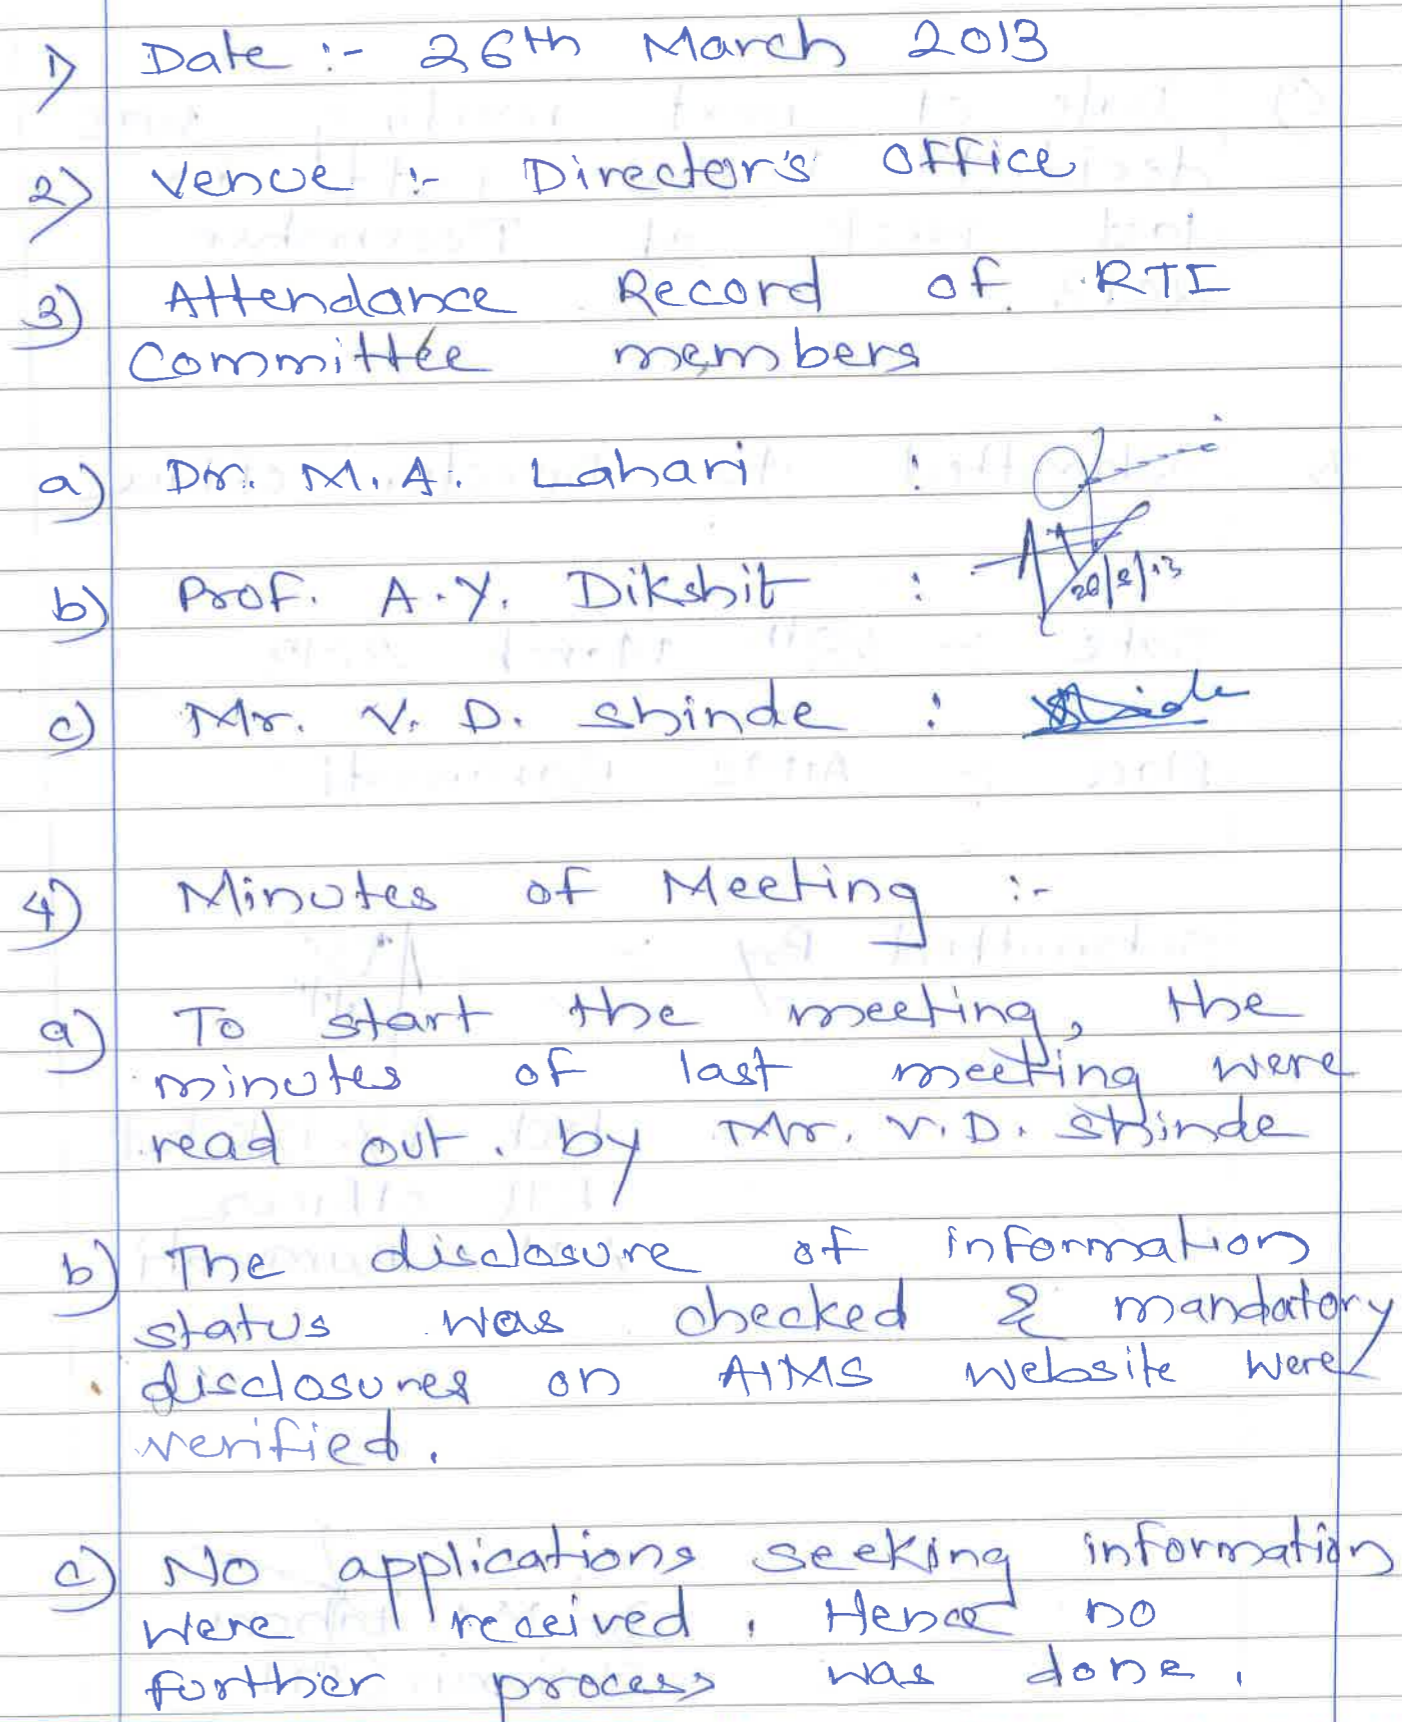 1) Date :- 26th March 2013
2) Venue :- Director's office
3) Attendance Record of RTI
Committee members
a) Dr. M.A. Lahari :
b) Prof. A.Y. Dikshit :
c) Mr. V. D. Shinde : Shinde
4) Minutes of Meeting :-
a) To start the meeting, the
minutes of last meeting were
read out. by Mr. V.D. Shinde
b) The disclosure of information
status was checked & mandatory
disclosures on AIMS website were
verified.
c) No applications seeking information
were received. Hence no
further process was done.